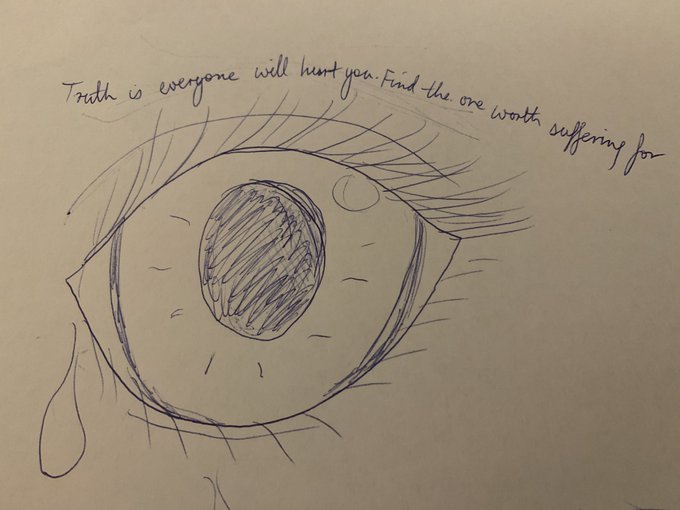 Truth is everyone will hurt you. Find the one worth suffering for